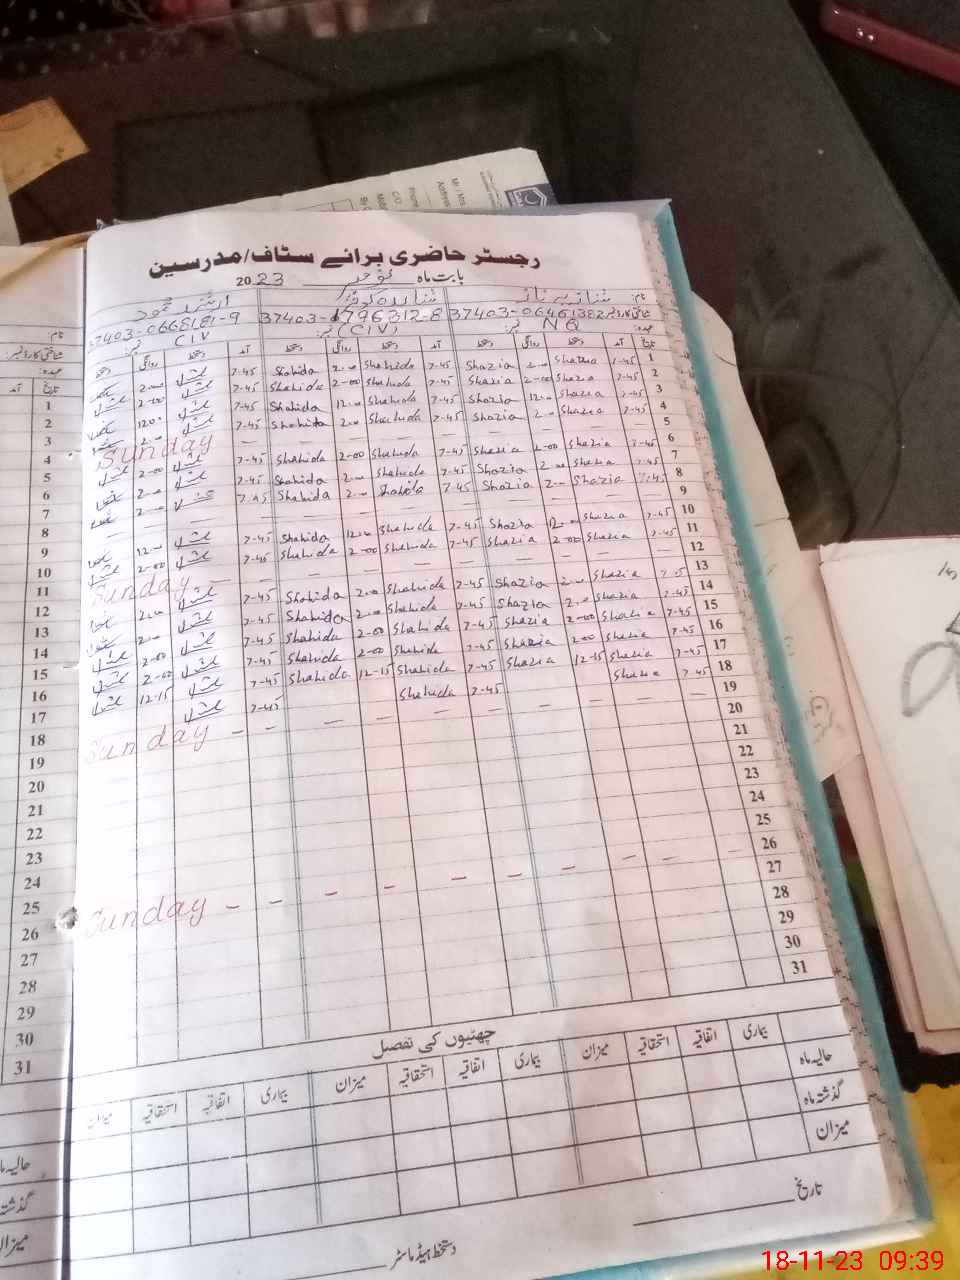 رجسٹر حاضری برائے سٹاف/مدرسین
بابت ماہ نومبر 2023
نام: شازیہ ناز شاہدہ کوثر ارشد محمود
شناختی کارڈ نمبر 37403-06461382 37403-1796312-8 37403-0668181-9
عہدہ: NQ نمبر: (CIV) نمبر: CIV
آمد دستخط روانگی دستخط آمد دستخط روانگی دستخط آمد دستخط روانگی دستخط
1 7-45 Shazia 2-00 Shazia 7-45 Shahida 2-00 Shahida 7-45 2-00
2 7-45 Shazia 2-00 Shazia 7-45 Shahida 2-00 Shahida 7-45 2-00
3 7-45 Shazia 12-00 Shazia 7-45 Shahida 12-00 Shahida 7-45 12-00
4 7-45 Shazia 2-00 Shazia 7-45 Shahida 2-00 Shahida 7-45 2-00
5 — — — — — — — — Sunday
6 7-45 Shazia 2-00 Shazia 7-45 Shahida 2-00 Shahida 7-45 2-00
7 7-45 Shazia 2-00 Shazia 7-45 Shahida 2-00 Shahida 7-45 2-00
8 7-45 Shazia 2-00 Shazia 7-45 Shahida 2-00 Shahida 7-45 2-00
9 — — — — — — — —
10 7-45 Shazia 12-00 Shazia 7-45 Shahida 12-00 Shahida 7-45 12-00
11 7-45 Shazia 2-00 Shazia 7-45 Shahida 2-00 Shahida 7-45 2-00
12 — — — — — — — — Sunday
13 7-45 Shazia 2-00 Shazia 7-45 Shahida 2-00 Shahida 7-45 2-00
14 7-45 Shazia 2-00 Shazia 7-45 Shahida 2-00 Shahida 7-45 2-00
15 7-45 Shazia 2-00 Shazia 7-45 Shahida 2-00 Shahida 7-45 2-00
16 7-45 Shazia 2-00 Shazia 7-45 Shahida 2-00 Shahida 7-45 2-00
17 7-45 Shazia 12-15 Shazia 7-45 Shahida 12-15 Shahida 7-45 12-15
18 7-45 Shazia 7-45 Shahida 7-45
19 — — — — — — — — Sunday
20
21
22
23
24
25
26 — — — — — — — — Sunday
27
28
29
30
31
چھٹیوں کی تفصیل
بیماری اتفاقیہ استحقاقیہ میزان بیماری اتفاقیہ استحقاقیہ میزان بیماری اتفاقیہ استحقاقیہ میزان
حالیہ ماہ
گذشتہ ماہ
میزان
تاریخ
دستخط ہیڈ ماسٹر
نام:
شناختی کارڈ نمبر:
عہدہ:
تاریخ آمد
1
2
3
4
5
6
7
8
9
10
11
12
13
14
15
16
17
18
19
20
21
22
23
24
25
26
27
28
29
30
31
حالیہ ما
گذشتہ
میزان
18-11-23 09:39